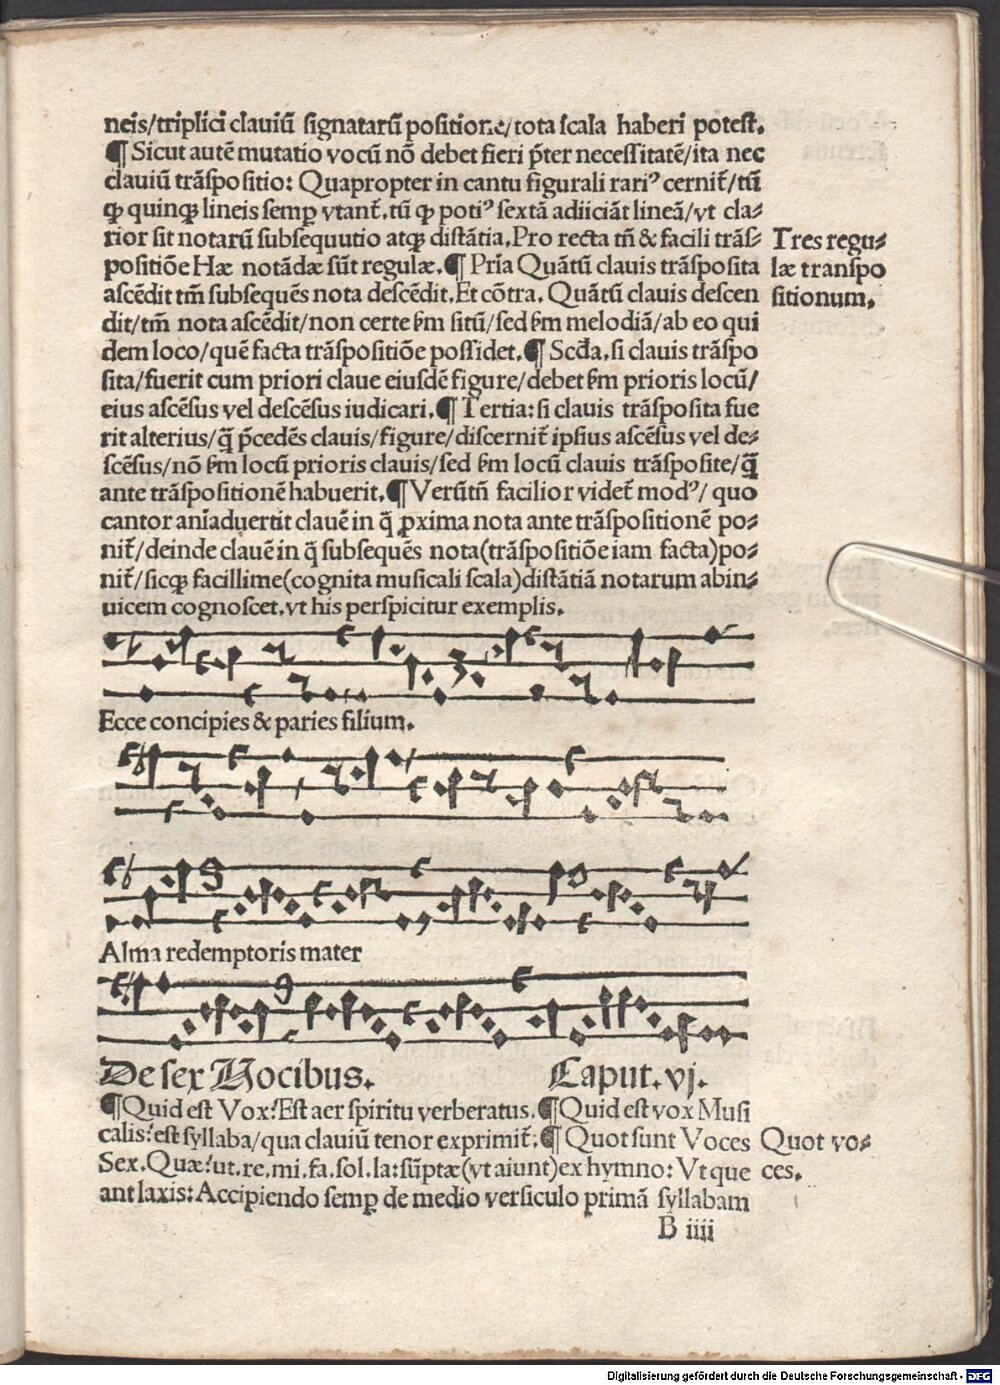 neis/triplici clauiū signatarū positione/tota scala haberi potest.
¶ Sicut autē mutatio vocū nō debet fieri p̄ter necessitatē/ita nec
clauiū trāspositio: Quapropter in cantu figurali rariꝰ cernit᷑/tū
ꝙ quinqꝫ lineis semꝑ vtant᷑. tū ꝙ potiꝰ sextā adiiciāt lineā/vt cla⸗
rior sit notarū subsequutio atqꝫ distātia. Pro recta tñ & facili trās⸗
positiōe Hæ notādæ sūt regulæ. ¶ Pria Quātū clauis trāsposita
ascēdit tm̄ subsequēs nota descēdit. Et cōtra. Quātū clauis descen
dit/tm̄ nota ascēdit/non certe ẜm sitū/sed ẜm melodiā/ab eo qui
dem loco/quē facta trāspositiōe possidet. ¶ Scđa. si clauis trāspo
sita/fuerit cum priori claue eiusdē figure/debet ẜm prioris locū/
eius ascēsus vel descēsus iudicari. ¶ Tertia: si clauis trāsposita fue
rit alterius/q̄ p̄cedēs clauis/figure/discernit᷑ ipsius ascēsus vel de⸗
scēsus/nō ẜm locū prioris clauis/sed ẜm locū clauis trāsposite/q̄
ante trāspositionē habuerit. ¶ Verūtñ facilior videt᷑ modꝰ/ quo
cantor aniaduertit clauē in q̄ ꝓxima nota ante trāspositionē po⸗
nit᷑/deinde clauē in q̄ subsequēs nota(trāspositiōe iam facta)po⸗
nit᷑/sicqꝫ facillime(cognita musicali scala)distātiā notarum abin⸗
uicem cognoscet. vt his perspicitur exemplis.
Tres regu⸗
læ transpo
sitionum.
Ecce concipies & paries filium.
Alma redemptoris mater
De sex Vocibus. Caput. vj.
¶Quid est Vox? Est aer spiritu verberatus. ¶Quid est vox Musi
calis? est syllaba/qua clauiū tenor exprimit᷑. ¶ Quot sunt Voces
Sex. Quæ? ut. re. mi. fa. sol. la: sūptæ(vt aiunt)ex hymno: Vt que
ant laxis: Accipiendo semꝑ de medio versiculo primā syllabam
Quot vo⸗
ces.
B iiii
Digitalisierung gefördert durch die Deutsche Forschungsgemeinschaft - DFG